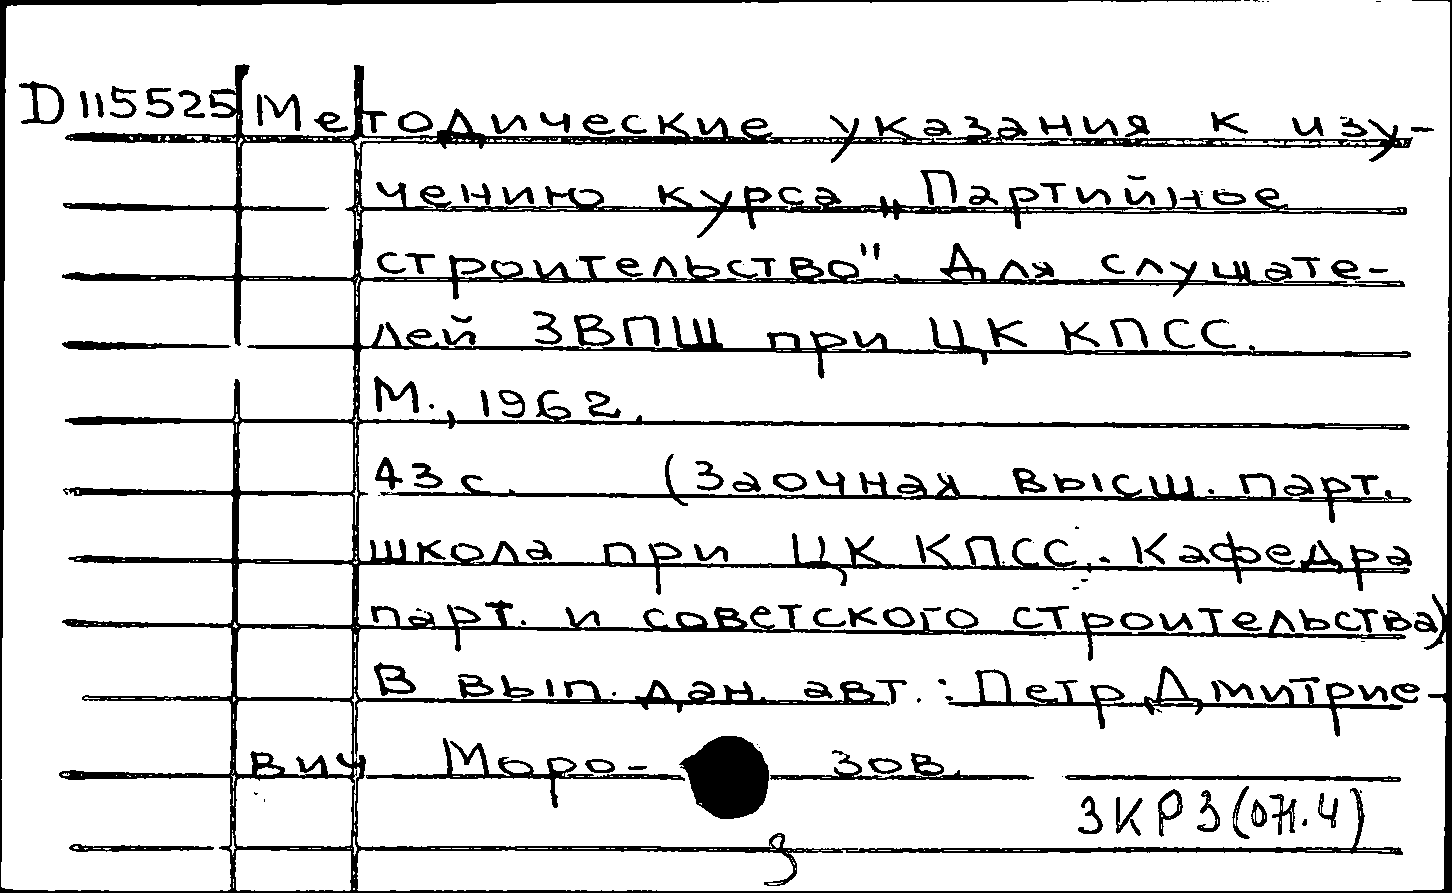 D 115525 Методические указания к изу-
чению курса „Партийное
строительство". Для слушате-
лей ЗВПШ при ЦК КПСС.
М., 1962.
43 с. (Заочная высш. парт.
школа при ЦК КПСС. Кафедра
парт. и советского строительства)
В вып. дан. авт.: Петр Дмитрие-
вич Моро- зов.
3КР3(071.4)